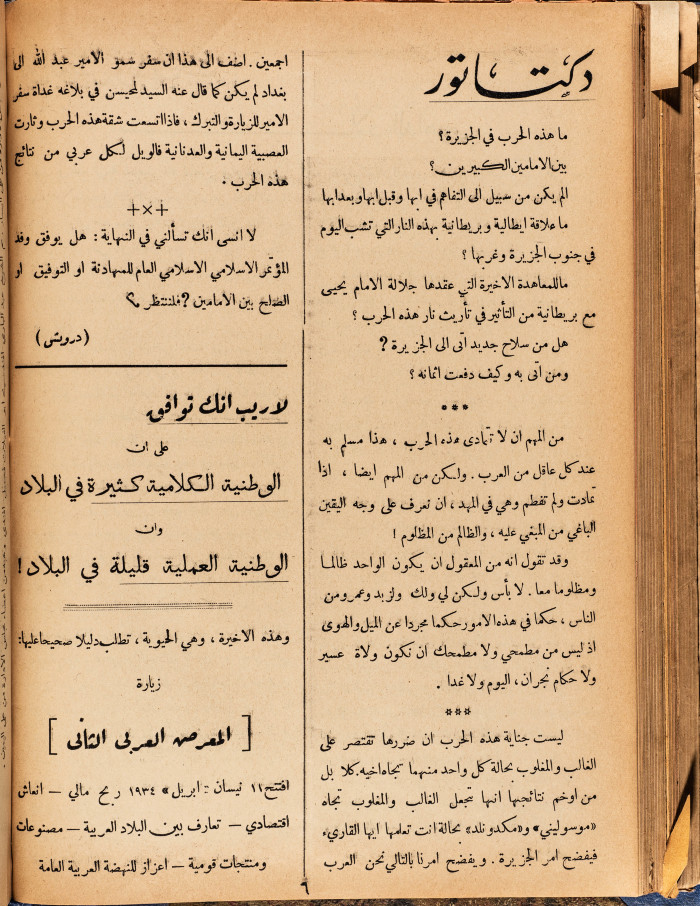 دكتاتور
ما هذه الحرب في الجزيرة؟
بين الامامين الكبيرين؟
الم يكن من سبيل الى التفاهم في ابها وقبل ابها وبعد ابها
ما علاقة ايطالية وبريطانية بهذه النار التي تشب اليوم
في جنوب الجزيرة وغربها؟
ما للمعاهدة الاخيرة التي عقدها جلالة الامام يحيى
مع بريطانية من التأثير في تأريث نار هذه الحرب؟
هل من سلاح جديد اتى الى الجزيرة؟
ومن اتى به وكيف دفعت اثمانه؟
***
من المهم ان لا تتمادى هذه الحرب، هذا مسلم به
عند كل عاقل من العرب. ولكن من المهم ايضا، اذا
تمادت ولم تفطم وهي في المهد، ان تعرف على وجه اليقين
الباغي من المبغي عليه، والظالم من المظلوم!
وقد تقول انه من المعقول ان يكون الواحد ظالما
ومظلوما معا. لا بأس ولكن لي ولك ولزيد وعمرو من
الناس، حكما في هذه الامور حكما مجردا عن الميل والهوى
اذ ليس من مطمحي ولا مطمحك ان نكون ولاة عسير
ولا حكام نجران، اليوم ولا غدا.
***
ليست جناية هذه الحرب ان ضررها تقتصر على
الغالب والمغلوب بحالة كل واحد منهما تجاه اخيه. كلا بل
من اوخم نتائجها انها تجعل الغالب والمغلوب تجاه
«موسوليني» و«مكدونلد» بحالة انت تعلمها ايها القاريء
فيفضح امر الجزيرة. ويفضح امرنا بالتالي نحن العرب
اجمعين. اضف الى هذا ان سفر سمو الامير عبد الله الى
بغداد لم يكن كما قال عنه السيد لمحيسن في بلاغه غداة سفر
الامير للزيارة والتبرك، فاذا اتسعت شقة هذه الحرب وثارت
العصبية اليمانية والعدنانية فالويل لكل عربي من نتائج
هذه الحرب.
+×+
لا انسى انك تسألني في النهاية: هل يوفق وفد
المؤتمر الاسلامي الاسلامي العام للمهادنة او التوفيق او
الصلح بين الامامين؟ فلننتظر؟
(درويش)
لاريب انك توافق
على ان
الوطنية الكلامية كثيرة في البلاد
وان
الوطنية العملية قليلة في البلاد!
وهذه الاخيرة، وهي الحيوية، تطلب دليلا صحيحا عليها:
زيارة
[المعرض العربي الثاني]
افتتح ١١ نيسان «ابريل» ١٩٣٤ ربح مالي — انعاش
اقتصادي — تعارف بين البلاد العربية — مصنوعات
ومنتجات قومية — اعزاز للنهضة العربية العامة
٦